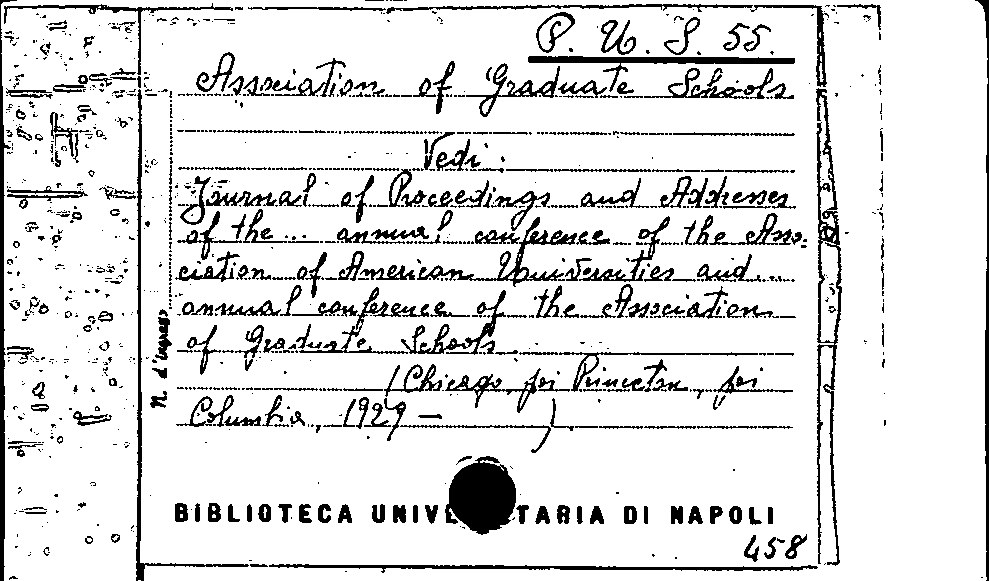 P. U. S. 55.
Association of Graduate Schools
Vedi:
Journal of Proceedings and Addresses
of the... annual conference of the Asso-
ciation of American Universities and...
annual conference of the Association
of Graduate Schools
(Chicago, poi Princeton, poi
Columbia, 1929 — ).
N. d'ingresso
BIBLIOTECA UNIVE TARIA DI NAPOLI
458